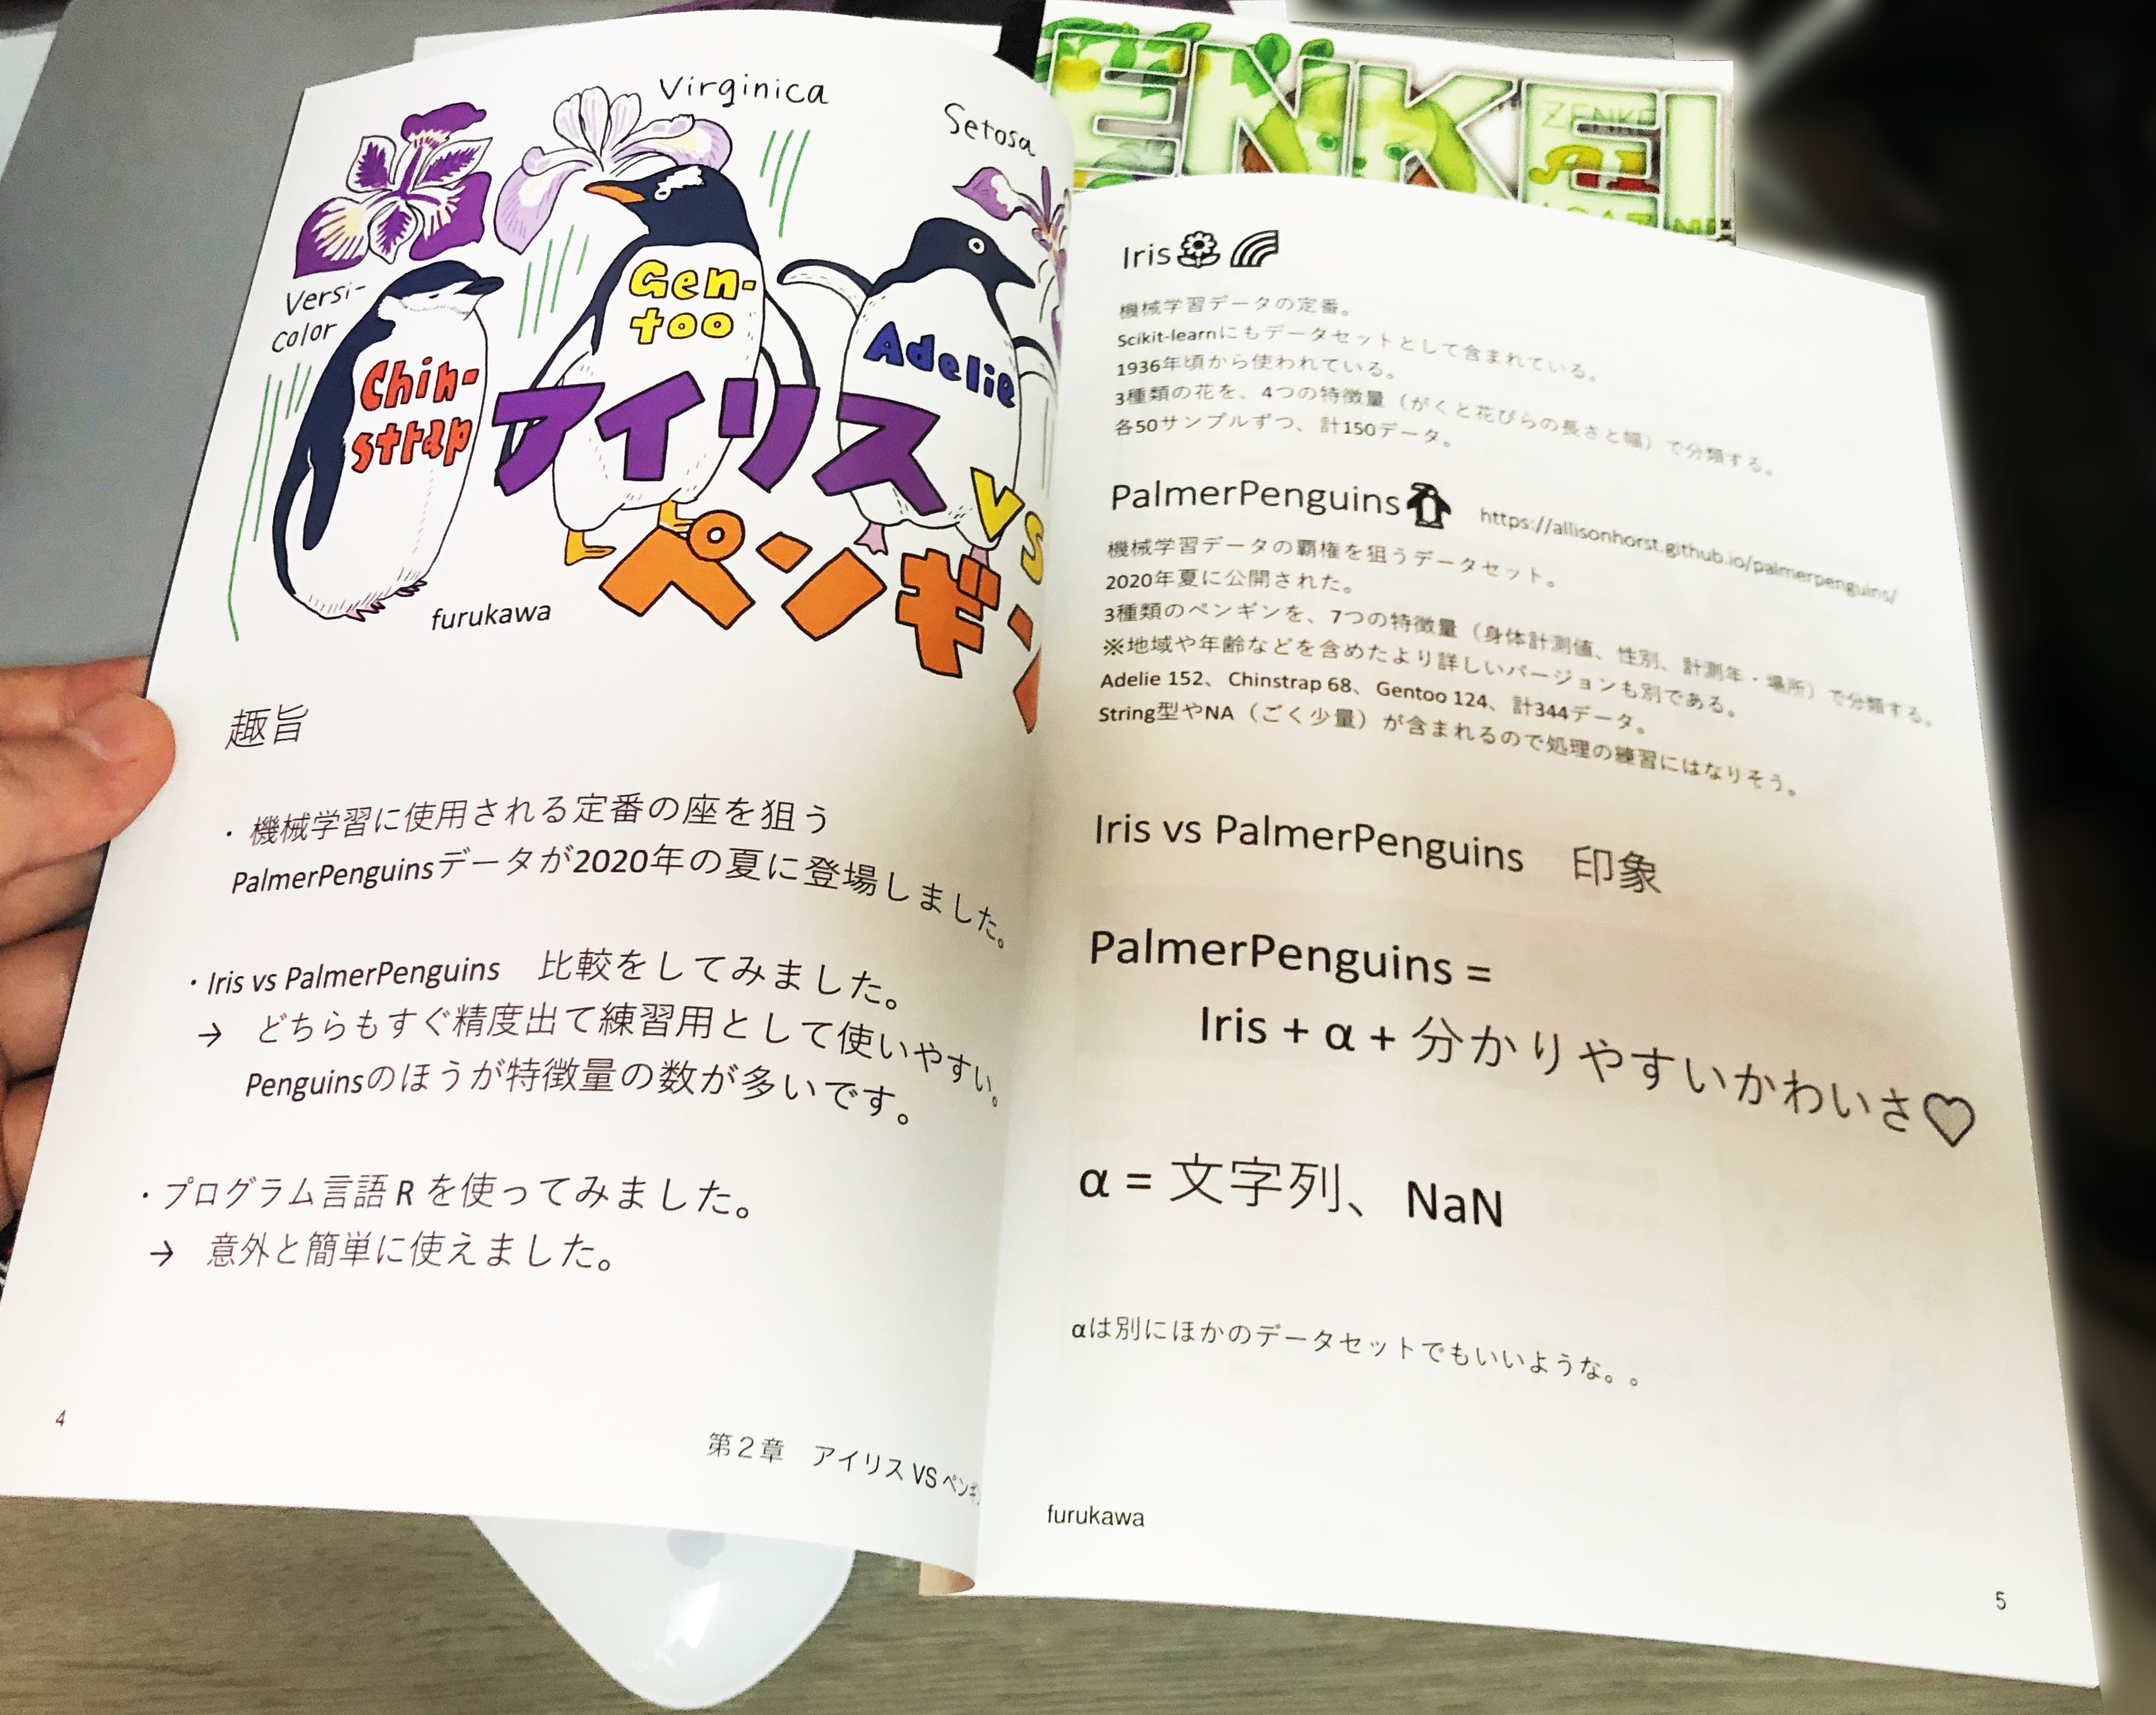 Virginica
Setosa
Versi-
color
Gen-
too
Adelie
Chin-
strap
アイリス
vs
ペンギン
furukawa
趣旨
・機械学習に使用される定番の座を狙う
PalmerPenguinsデータが2020年の夏に登場しました。
・Iris vs PalmerPenguins　比較をしてみました。
→　どちらもすぐ精度出て練習用として使いやすい。
Penguinsのほうが特徴量の数が多いです。
・プログラム言語 R を使ってみました。
→　意外と簡単に使えました。
4
第２章　アイリス VS ペンギ
ENKEI
ZENKEI
Iris
機械学習データの定番。
Scikit-learnにもデータセットとして含まれている。
1936年頃から使われている。
3種類の花を、4つの特徴量（がくと花びらの長さと幅）で分類する。
各50サンプルずつ、計150データ。
PalmerPenguins https://allisonhorst.github.io/palmerpenguins/
機械学習データの覇権を狙うデータセット。
2020年夏に公開された。
3種類のペンギンを、7つの特徴量（身体計測値、性別、計測年・場所）で分類する。
※地域や年齢などを含めたより詳しいバージョンも別である。
Adelie 152、Chinstrap 68、Gentoo 124、計344データ。
String型やNA（ごく少量）が含まれるので処理の練習にはなりそう。
Iris vs PalmerPenguins　印象
PalmerPenguins =
Iris + α + 分かりやすいかわいさ♡
α = 文字列、NaN
αは別にほかのデータセットでもいいような。。
furukawa
5